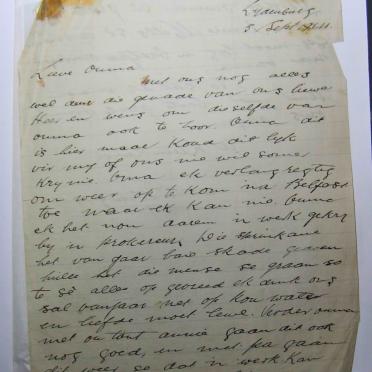 Lydenburg
5 Sept
Lieve Ouma
met ons nog alles
wel deur die genade van ons liewe
Heer en wens om dieselfde van
ouma ook te hoor. Ouma dit
is hier maar koud dit lyk
vir my of ons nie wil somer
kry nie. Ouma ek verlang regtig
om weer op te kom na Belfast
toe maar ek kan nie. Ouma
ek het nou daarem 'n werk gekry
by 'n prokureur. Die sprinkane
het van jaar baie skade
hulle het die mense se graan so
te sê alles op ek dink ons
sal vanjaar net op kou water
en liefde moet lewe.
met ou tant Annie gaan dit ook
nog goed, en met pa gaan
dit weer so dat 'n werk kan